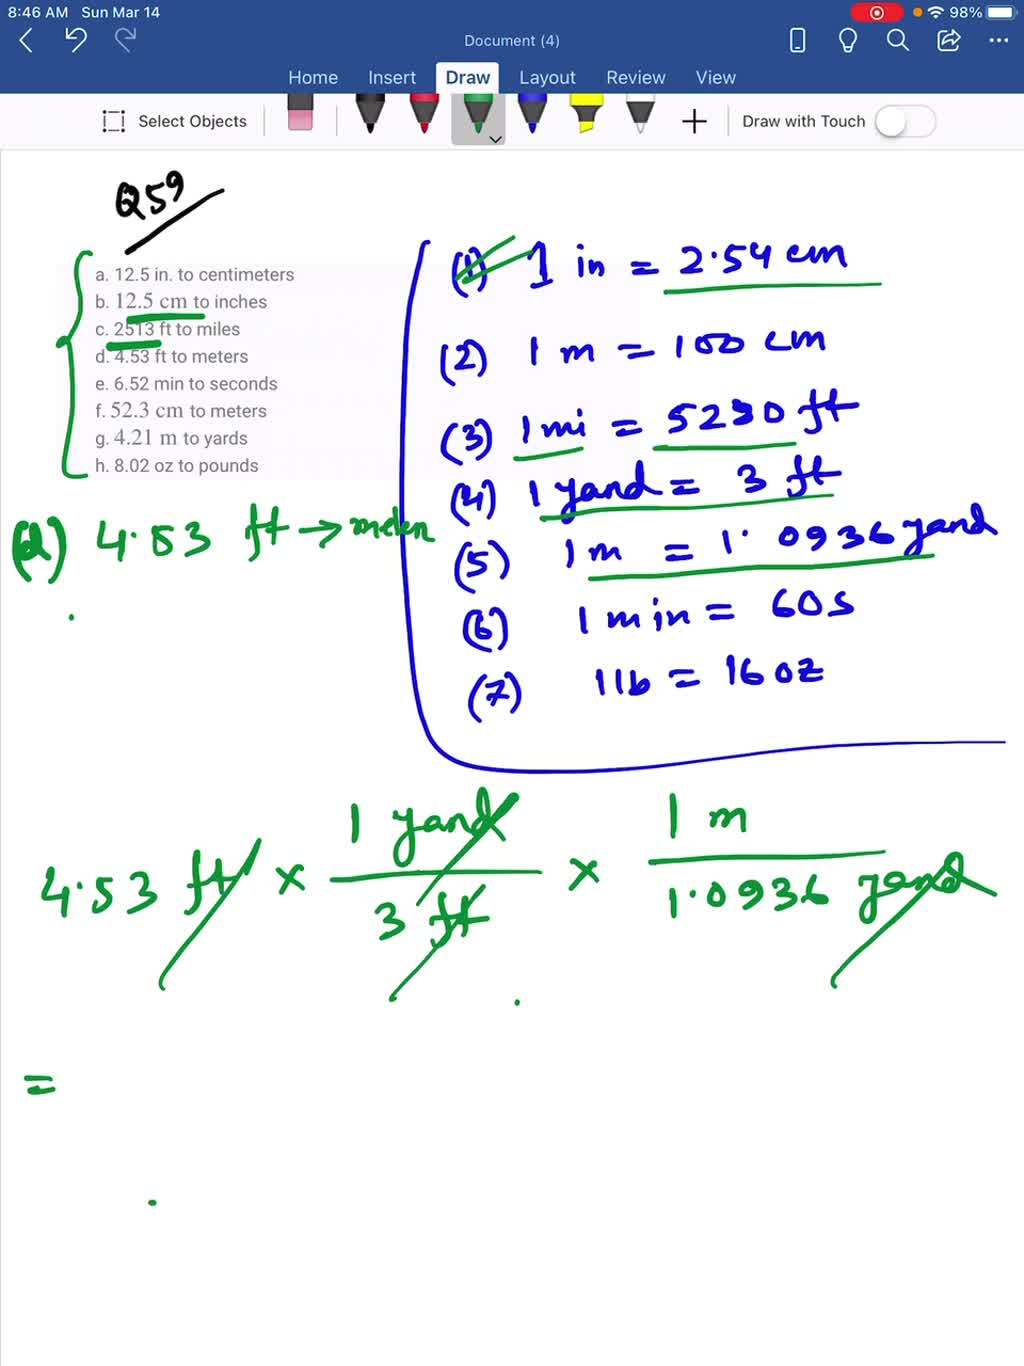 8:46 AM Sun Mar 14 98%
Document (4)
Home Insert Draw Layout Review View
Select Objects Draw with Touch
Q59
a. 12.5 in. to centimeters
b. 12.5 cm to inches
c. 2513 ft to miles
d. 4.53 ft to meters
e. 6.52 min to seconds
f. 52.3 cm to meters
g. 4.21 m to yards
h. 8.02 oz to pounds
(1) 1 in = 2.54 cm
(2) 1 m = 100 cm
(3) 1 mi = 5280 ft
(4) 1 yard = 3 ft
(5) 1 m = 1.0936 yard
(6) 1 min = 60s
(7) 1 lb = 16 oz
(d) 4.53 ft → meter
4.53 ft × 1 yard / 3 ft × 1 m / 1.0936 yard
=